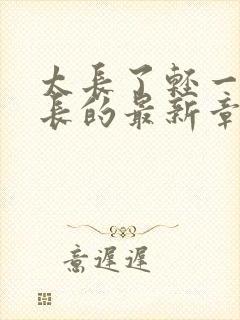 太長了輕一
長的最新章
意遲遲